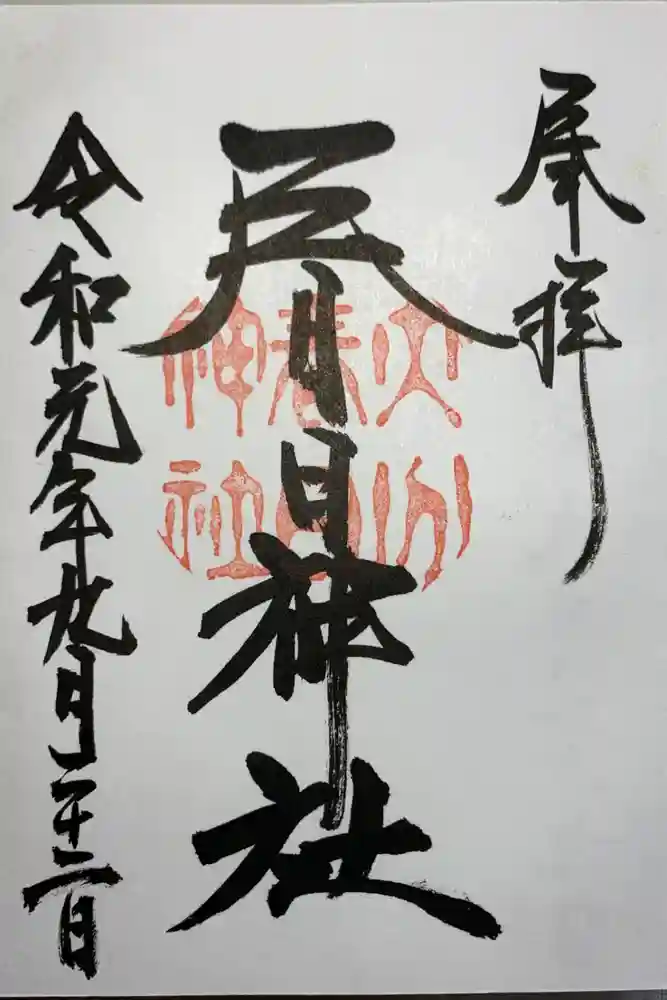 奉拝
春日神社
令和元年九月二十二日
大分
春日
神社